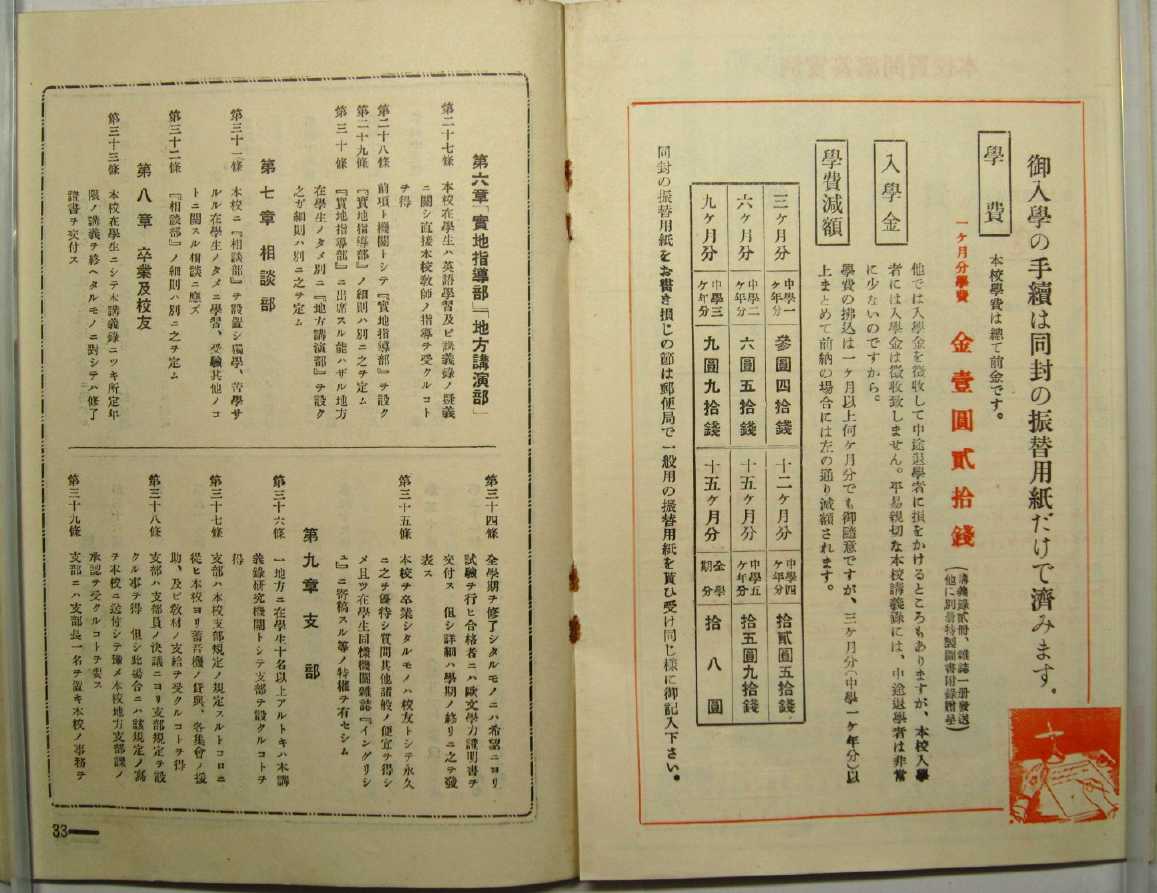 御入學の手續は同封の振替用紙だけで濟みます。
學費
本校學費は總て前金です。
一ヶ月分學費 金壹圓貳拾錢
(講義錄貳册、雜誌一册發送
他に別册特製圖書附錄贈呈)
入學金
他では入學金を徵收して中途退學者に損をかけるところもありますが、本校入學
者には入學金は徵收致しません。平易親切な本校講義錄には、中途退學者は非常
に少ないのですから。
學費減額
學費の拂込は一ヶ月以上何ヶ月分でも御隨意ですが、三ヶ月分(中學一ヶ年分)以
上まとめて前納の場合には左の通り減額されます。
三ヶ月分 中學一ヶ年分 參圓四拾錢 十二ヶ月分 中學四ヶ年分 拾貳圓五拾錢
六ヶ月分 中學二ヶ年分 六圓五拾錢 十五ヶ月分 中學五ヶ年分 拾五圓九拾錢
九ヶ月分 中學三ヶ年分 九圓九拾錢 十五ヶ月分 全學期分 拾八圓
同封の振替用紙をお書き損じの節は郵便局で一般用の振替用紙を貰ひ受け同じ樣に御記入下さい。
第六章「實地指導部」「地方講演部」
第二十七條 本校在學生ハ英語學習及ビ講義錄ノ疑義
ニ關シ直接本校敎師ノ指導ヲ受クルコト
ヲ得
第二十八條 前項ト機關トシテ『實地指導部』ヲ設ク
第二十九條 『實地指導部』ノ細則ハ別ニ之ヲ定ム
第三十條 『實地指導部』ニ出席スル能ハザル地方
在學生ノタメ別ニ『地方講演部』ヲ設ク
之ガ細則ハ別ニ之ヲ定ム
第七章 相談部
第三十一條 本校ニ『相談部』ヲ設置シ獨學、苦學サ
ルル在學生ノタメニ學習、受驗其他ノコ
トニ關スル相談ニ應ズ
第三十二條 『相談部』ノ細則ハ別ニ之ヲ定ム
第八章 卒業及校友
第三十三條 本校在學生ニシテ本講義錄ニツキ所定年
限ノ講義ヲ終ヘタルモノニ對シテハ修了
證書ヲ交付ス
第三十四條 全學期ヲ修了シタルモノニハ希望ニヨリ
試驗ヲ行ヒ合格者ニハ歐文學力證明書ヲ
交付ス 但シ詳細ハ學期ノ終リニ之ヲ發
表ス
第三十五條 本校ヲ卒業シタルモノハ校友トシテ永久
ニ之ヲ優待シ質問其他諸般ノ便宜ヲ得シ
メ且ツ在學生同樣機關雜誌『イングリシ
ュ』ニ寄稿スル等ノ特權ヲ有セシム
第九章 支部
第三十六條 一地方ニ在學生十名以上アルトキハ本講
義錄硏究機關トシテ支部ヲ設クルコトヲ
得
第三十七條 支部ハ本校支部規定ノ規定スルトコロニ
從ヒ本校ヨリ蓄音機ノ貸與、各集會ノ援
助、及ビ敎材ノ支給ヲ受クルコトヲ得
第三十八條 支部ハ支部員ノ決議ニヨリ支部規定ヲ設
クル事ヲ得 但シ此場合ニハ該規定ノ寫
ヲ本校ニ送付シテ豫メ本校地方支部課ノ
承認ヲ受クルコトヲ要ス
第三十九條 支部ニハ支部長一名ヲ置キ本校ノ事務ヲ
33